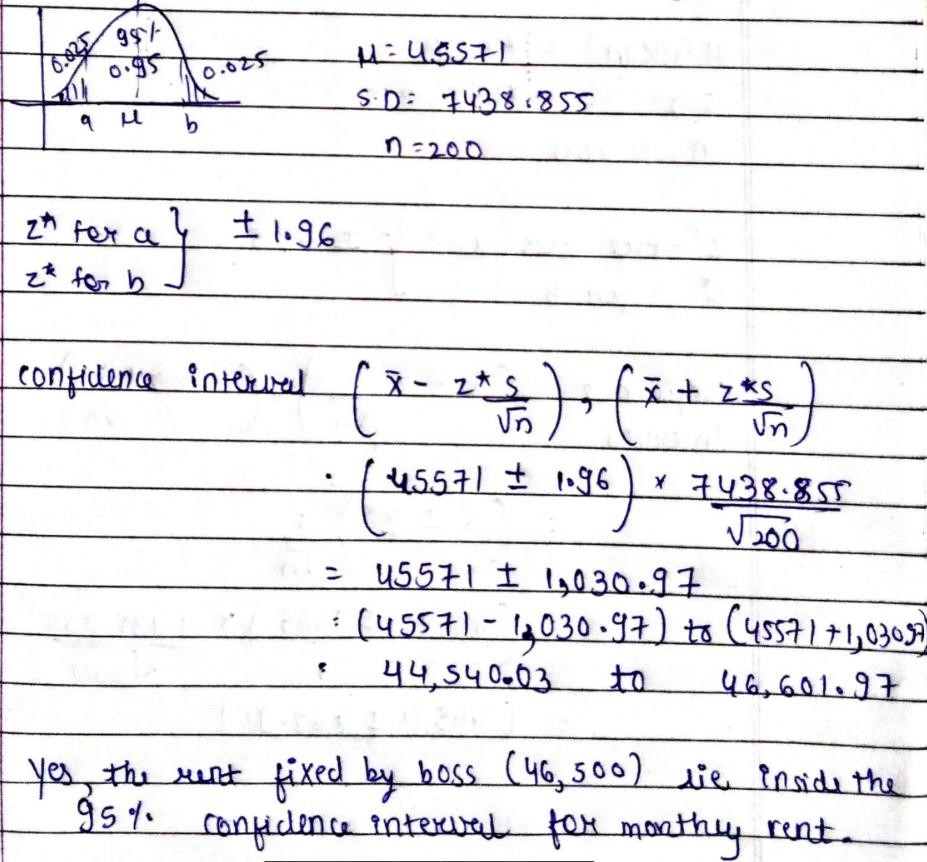 95%
0.025 0.95 0.025
a μ b
μ = 45571
S.D: 7438.855
n = 200
z* for a } ± 1.96
z* for b
confidence interval ( x̄ - z* s/√n ), ( x̄ + z* s/√n )
. ( 45571 ± 1.96 ) * 7438.855/√200
= 45571 ± 1,030.97
: (45571 - 1,030.97) to (45571 + 1,03097)
: 44,540.03 to 46,601.97
Yes, the rent fixed by boss (46,500) lie inside the
95% confidence interval for monthly rent.